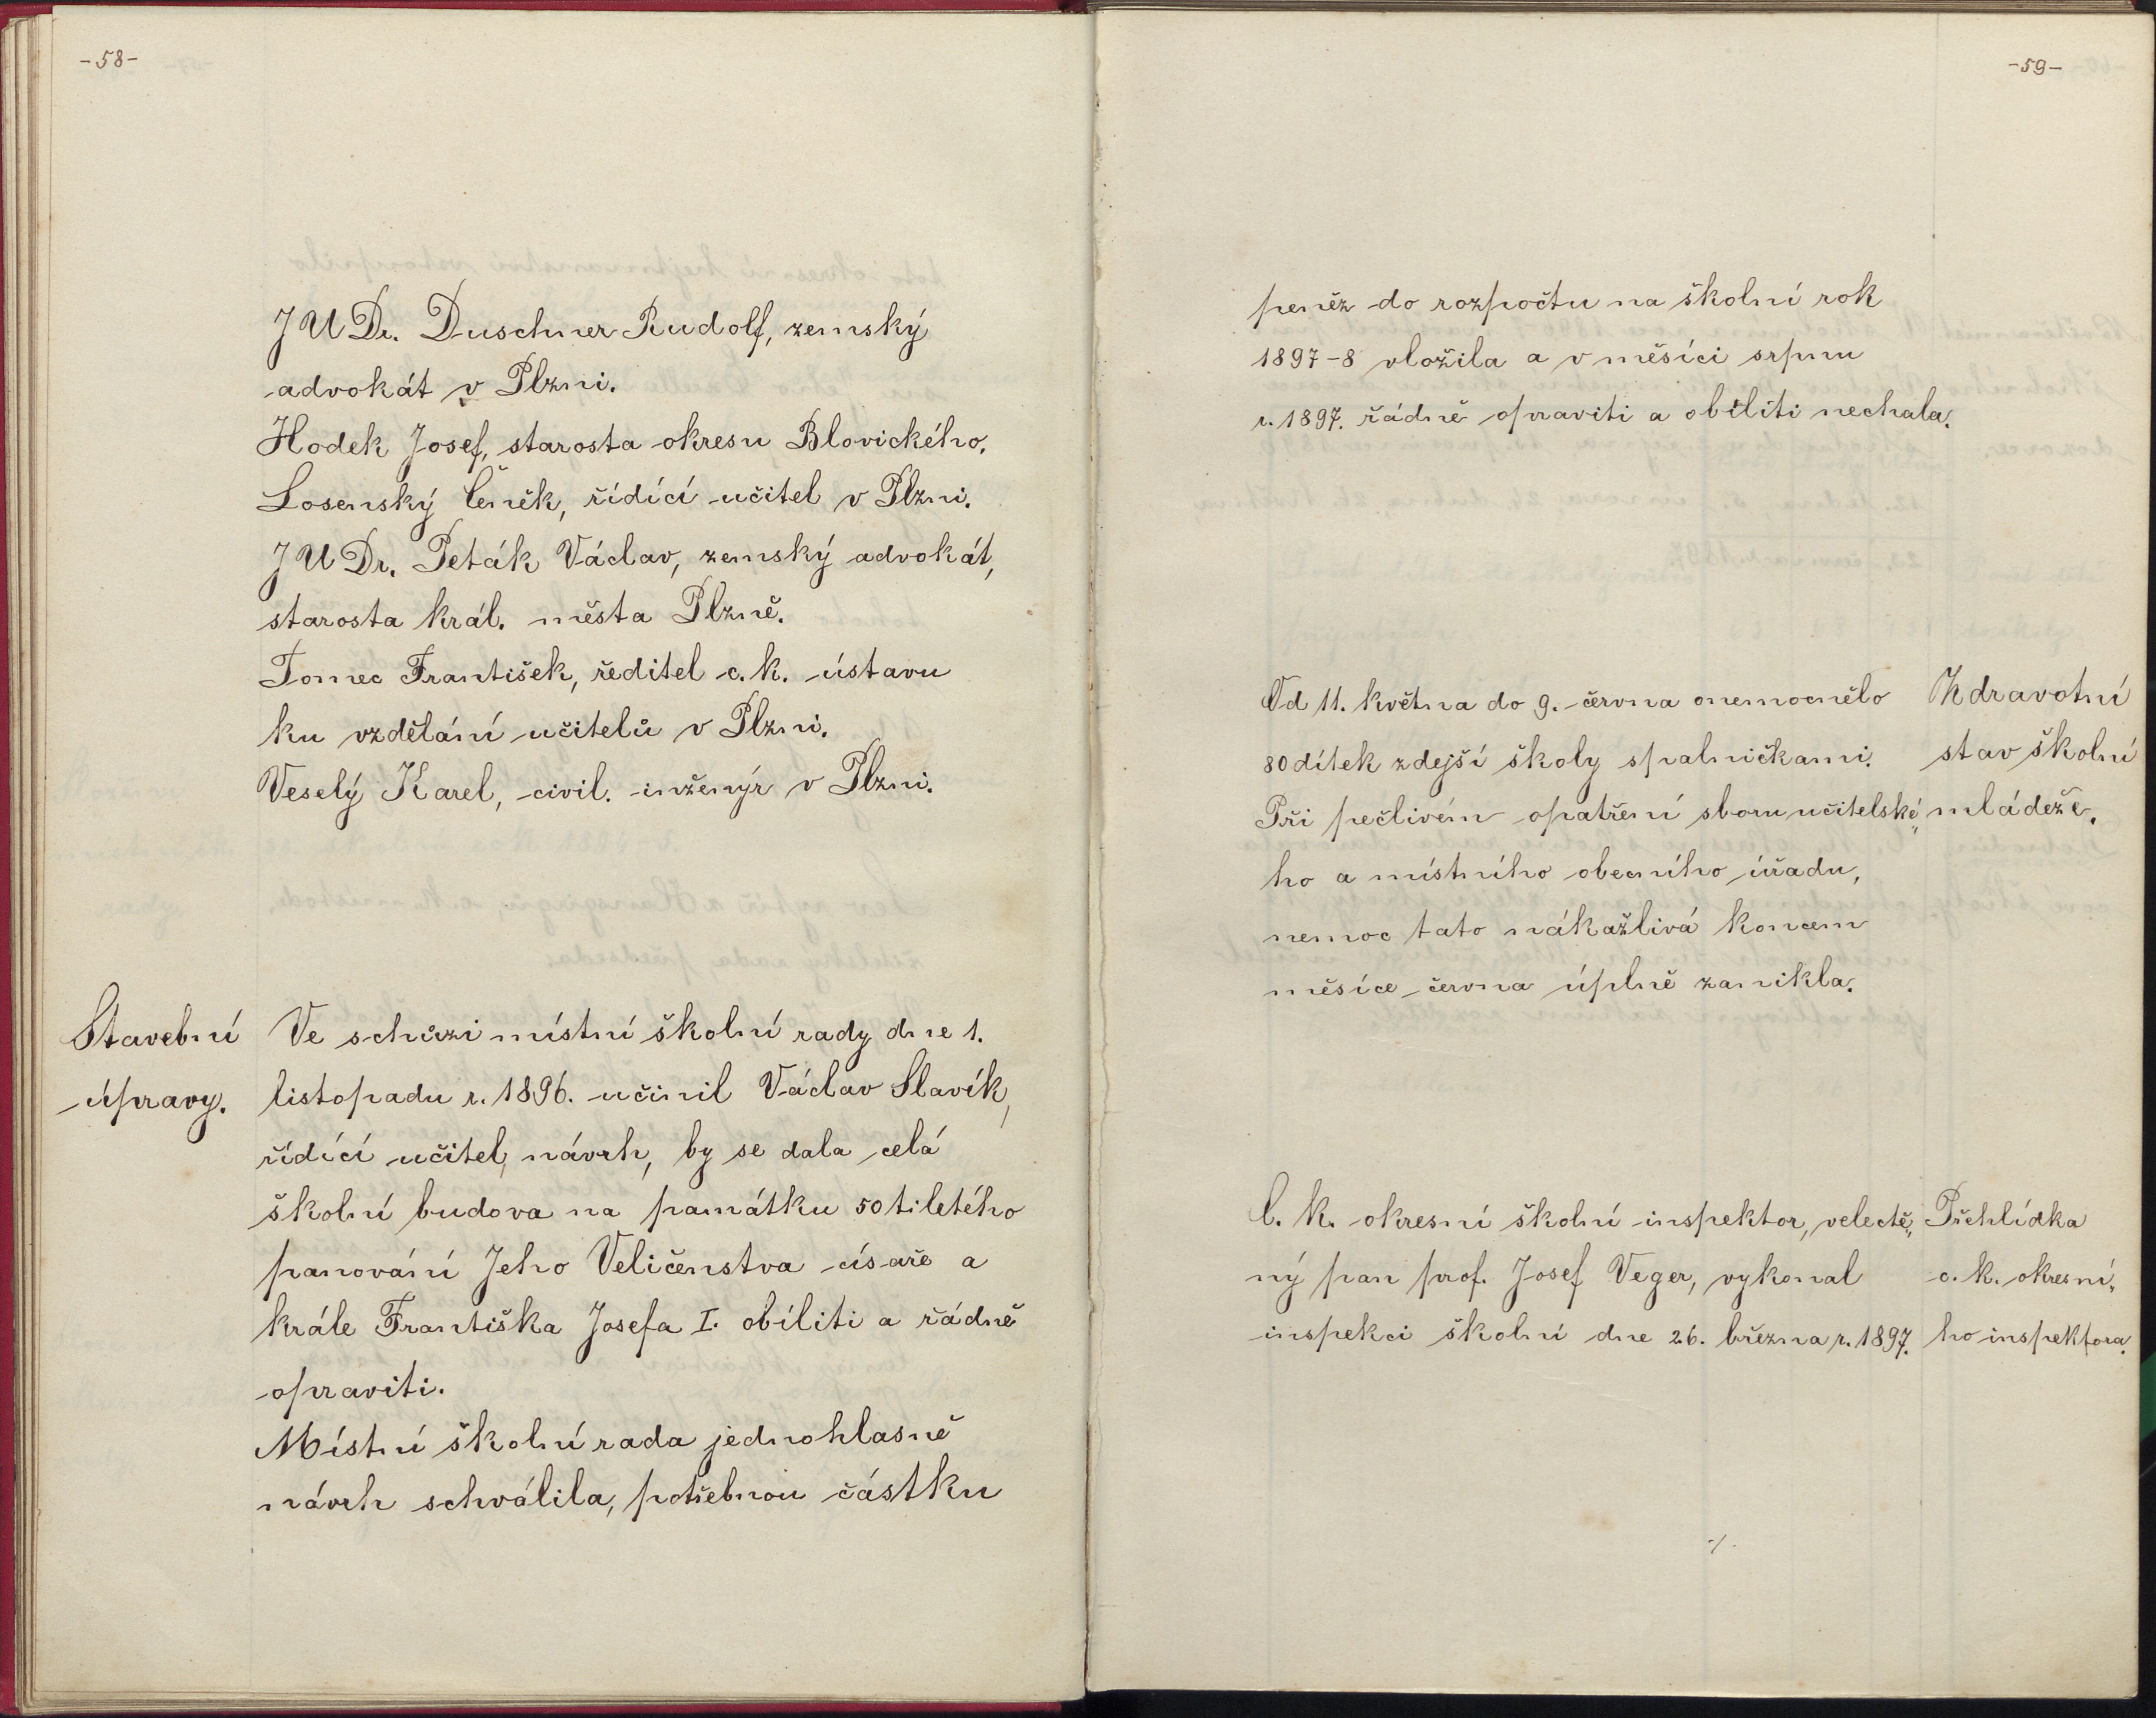 -58-
JUDr. Duschner Rudolf, zemský
advokát v Plzni.
Hodek Josef, starosta okresu Blovického.
Losenský Čeněk, řídící učitel v Plzni.
JUDr. Peták Václav, zemský advokát,
starosta král. města Plzně.
Tomec František, ředitel c. k. ústavu
ku vzdělání učitelů v Plzni.
Veselý Karel, civil. inženýr v Plzni.
Stavební
úpravy.
Ve schůzi místní školní rady dne 1.
listopadu r. 1896. učinil Václav Slavík,
řídící učitel, návrh, by se dala celá
školní budova na památku 50tiletého
panování Jeho Veličenstva císaře a
krále Františka Josefa I. obíliti a řádně
opraviti.
Místní školní rada jednohlasně
návrh schválila, potřebnou částku
-59-
peněz do rozpočtu na školní rok
1897-8 vložila a v měsíci srpnu
r. 1897. řádně opraviti a obíliti nechala.
Od 11. května do 9. června onemocnělo
80 dítek zdejší školy spalničkami.
Při pečlivém opatření sboru učitelské„
ho a místního obecního úřadu,
nemoc tato nákažlivá koncem
měsíce června úplně zanikla.
Zdravotní
stav školní
mládeže.
C. k. okresní školní inspektor, velectě„
ný pan prof. Josef Veger, vykonal
inspekci školní dne 26. března r. 1897.
Přehlídka
c. k. okresní„
ho inspektora.
./.